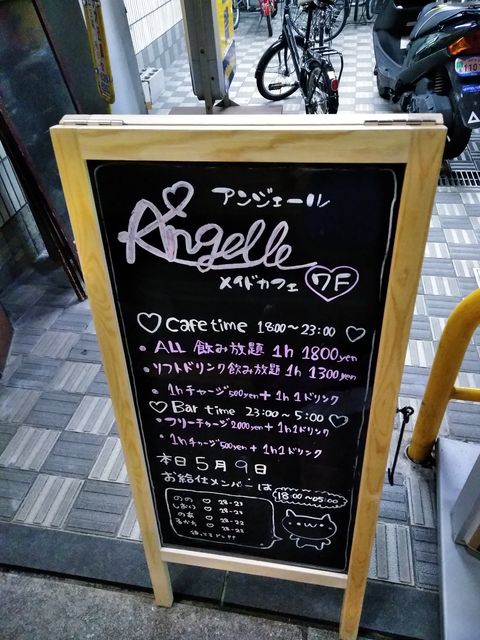 アンジェール
Angelle
メイドカフェ 7F
♡ Cafe time 18:00～23:00 ♡
• ALL 飲み放題 1h 1800yen
• ソフトドリンク飲み放題 1h 1300yen
• 1hチャージ500yen + 1h1ドリンク
♡ Bar time 23:00～5:00 ♡
• フリーチャージ2,000yen + 1h1ドリンク
• 1hチャージ500yen + 1h1ドリンク
本日 5月9日
お給仕メンバーは
18:00～05:00
のの ♡
♡
のあ ♡
♡